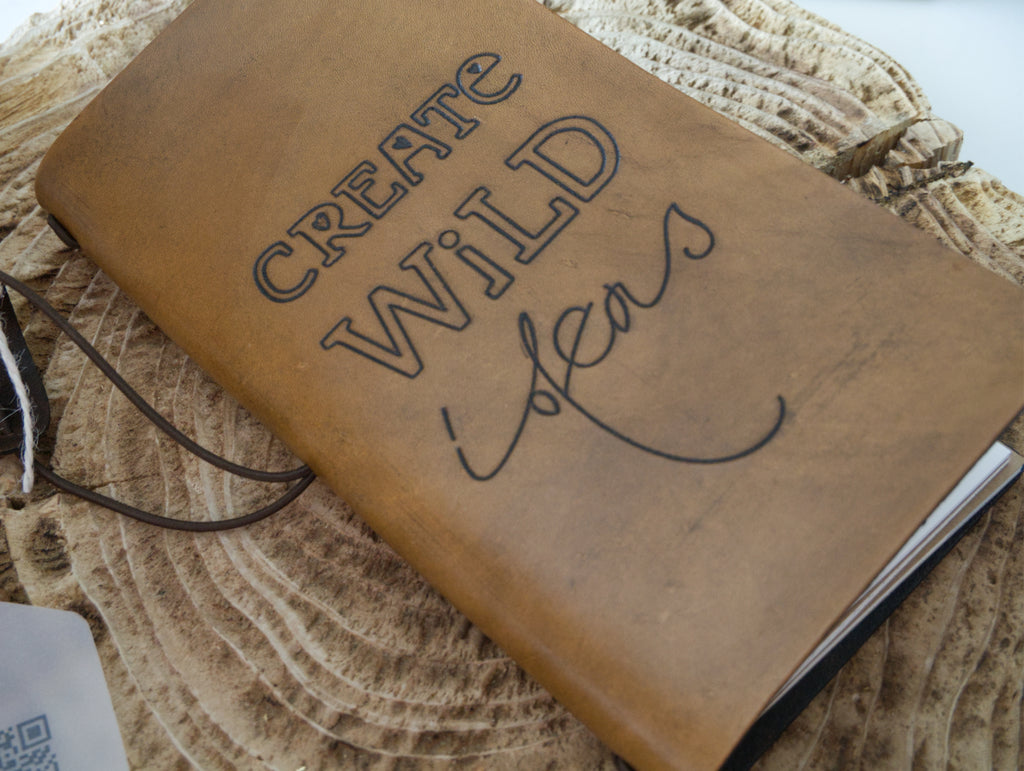 CREATE
WiLD
ideas